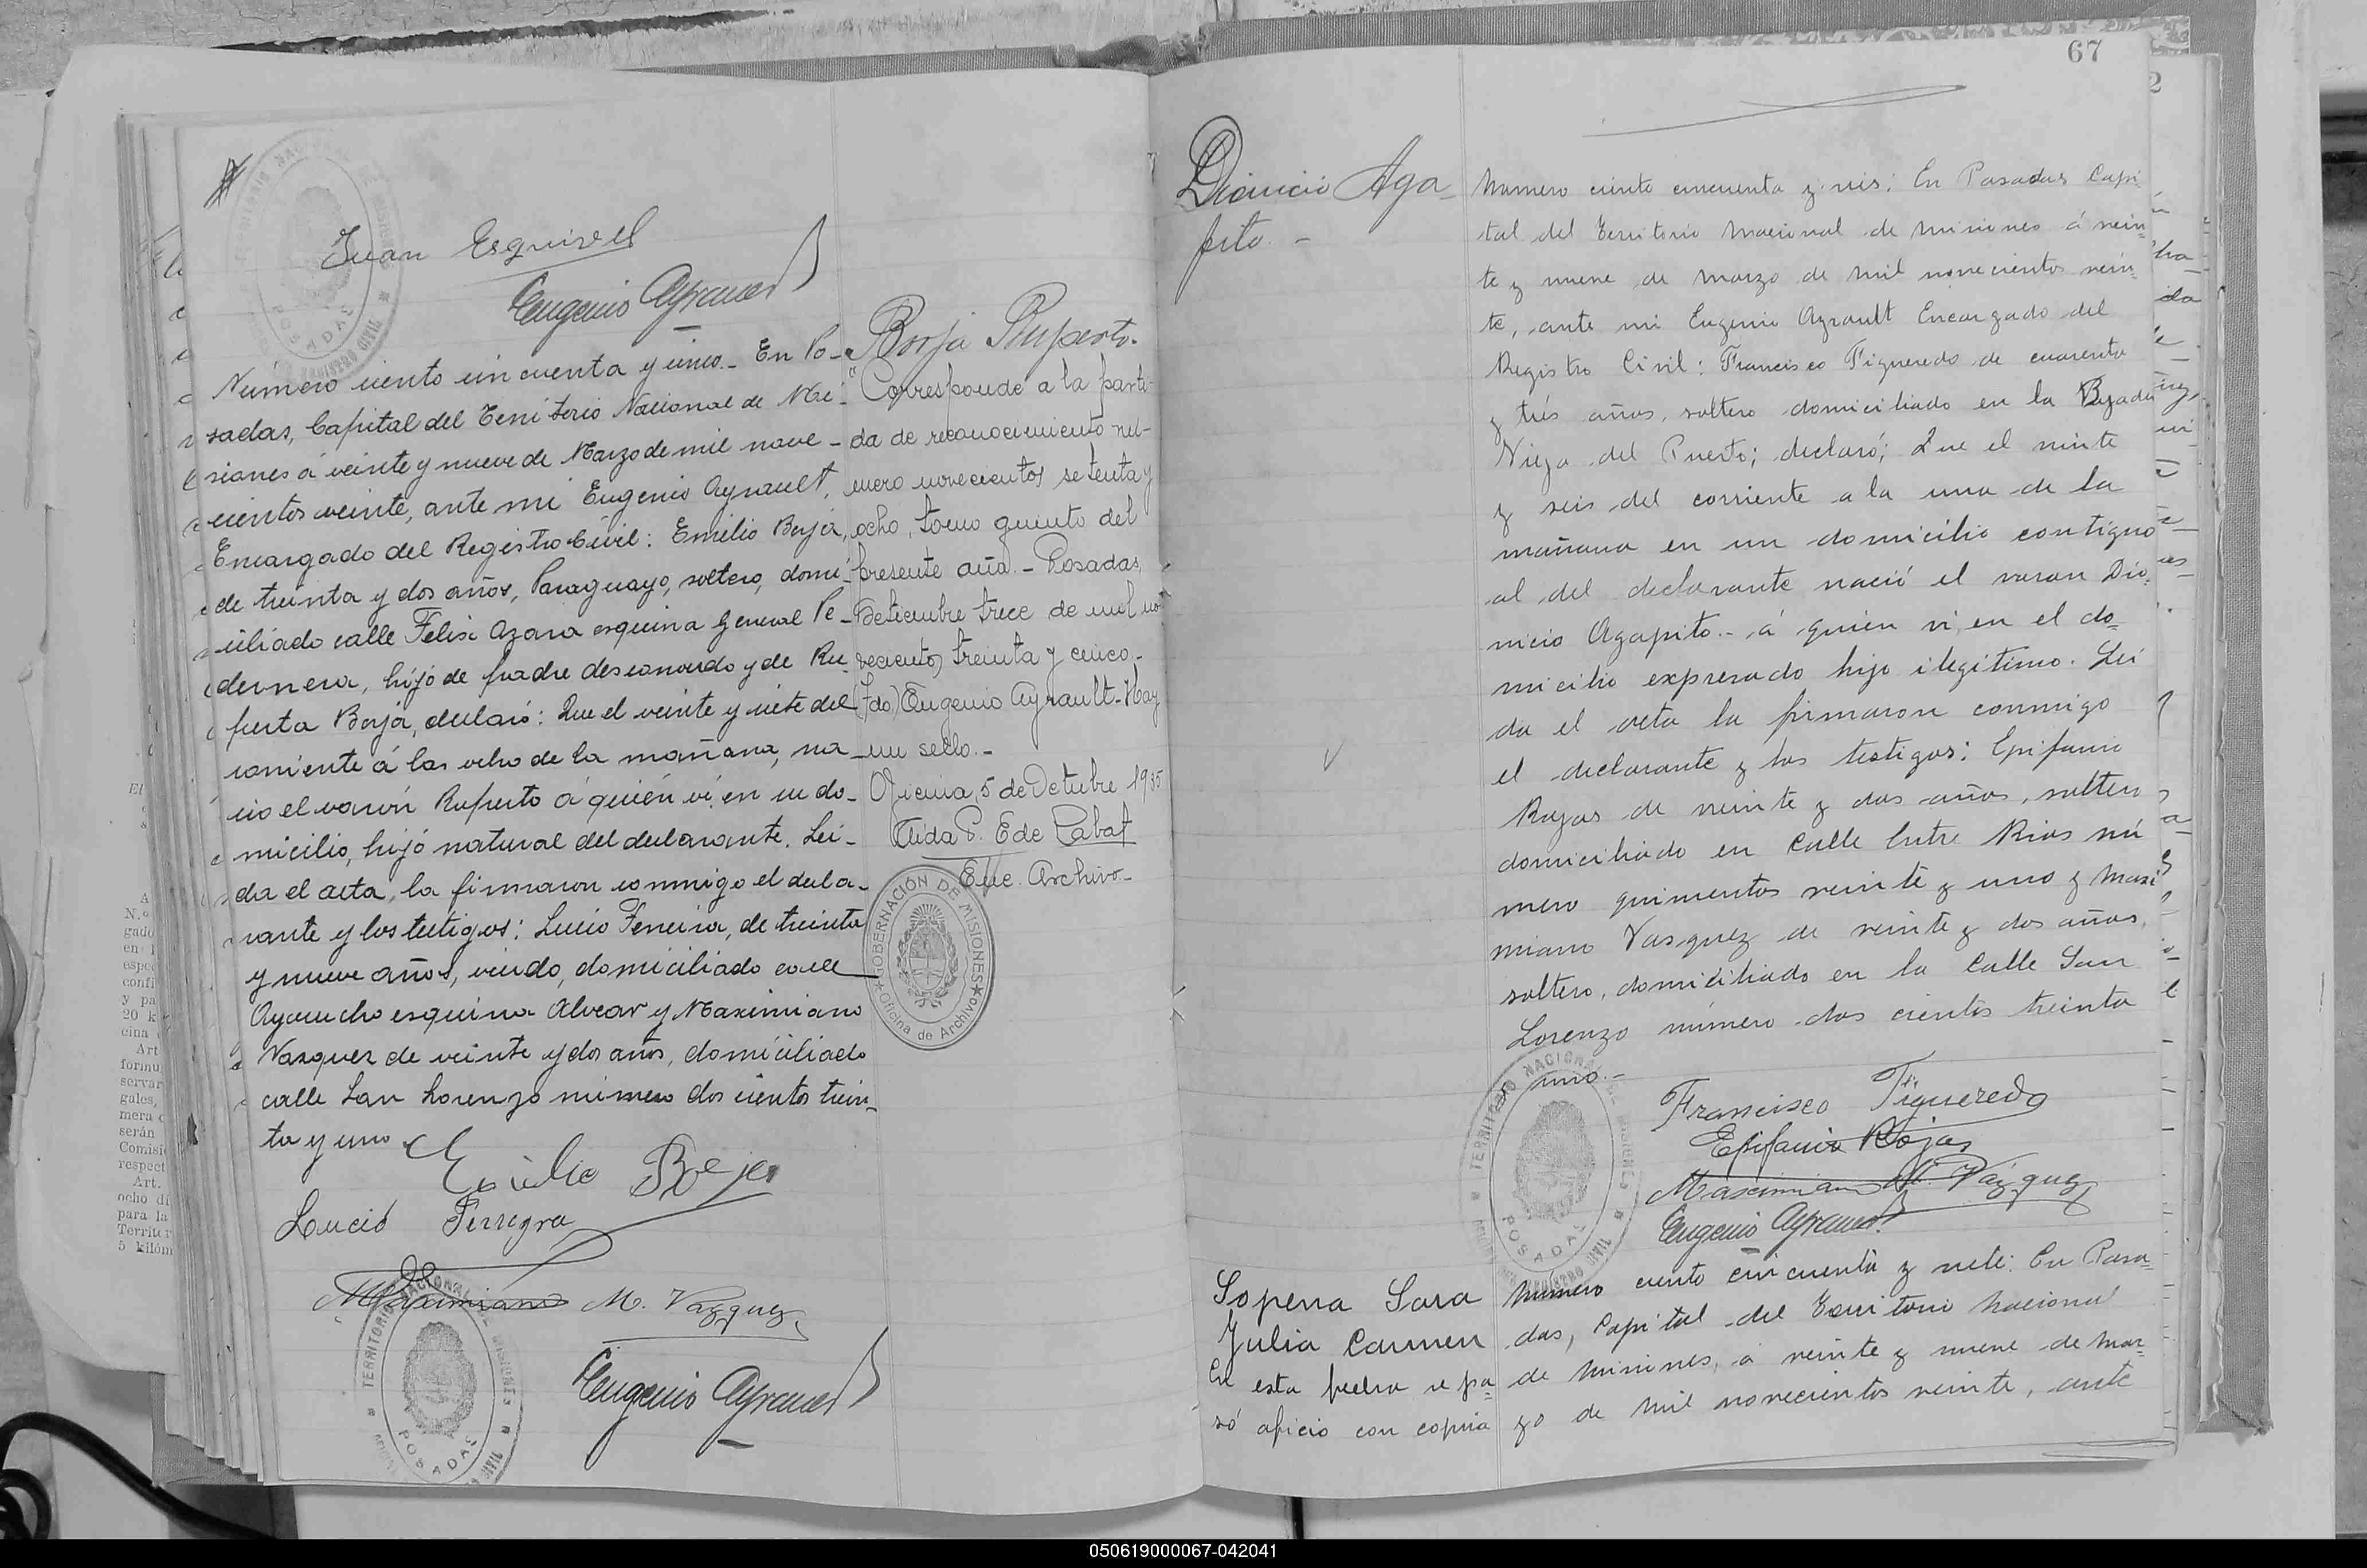 Juan Esquivel
Eugenio Ayrault
Número ciento cincuenta y cinco._ En Po-
sadas, Capital del Territorio Nacional de Mi-
siones á veinte y nueve de Marzo de mil nove-
cientos veinte, ante mi Eugenio Ayrault,
Encargado del Registro Civil: Emilio Borja,
de treinta y dos años, Paraguayo, soltero, domi-
ciliado calle Felix Azara esquina General Pe-
dernera, hijo de padre desconocido y de Ru-
perta Borja, declaró: Que el veinte y siete del
corriente á las ocho de la mañana, na-
cio el varón Ruperto á quién ví, en su do-
micilio, hijo natural del declarante. Lei-
da el acta, la firmaron conmigo el decla-
rante y los testigos: Lucio Ferreira, de treinta
y nueve años, viudo, domiciliado calle
Ayacucho esquina Alvear y Maximiano
Vazquez de veinte y dos años, domiciliado
calle San Lorenzo número dos cientos trein-
ta y uno.
Emilio Borja
Lucio Ferreyra
Maximiano M. Vazquez
Eugenio Ayrault
TERRITORIO NACIONAL DE MISIONES
POSADAS
Borja Ruperto.
"Corresponde a la parti-
da de reconocimiento nú-
mero novecientos setenta y
ocho, tomo quinto del
presente año. - Posadas,
Setiembre trece de mil no-
vecientos treinta y cinco.
(Fdo) Eugenio Ayrault. Hay
un sello. -
Oficina, 5 de Octubre 1935
Aida P. E de Labat
Enc. Archivo-
GOBERNACIÓN DE MISIONES
Oficina de Archivo
67
Dionicio Aga-
pito. -
Numero ciento cincuenta y seis: En Posadas Capi-
tal del Territorio Nacional de Misiones á vein-
te y nueve de Marzo de mil novecientos vein-
te, ante mi Eugenio Ayrault Encargado del
Registro Civil: Francisco Figueredo de cuarenta
y trés años, soltero domiciliado en la Bajada
Vieja del Puerto; declaró; Que el veinte
y seis del corriente a la una de la
mañana en un domicilio contiguo
al del declarante nació el varon Dio-
nicio Agapito.- á quien ví, en el do-
micilio expresado hijo ilegitimo. Lei
da el acta la firmaron conmigo
el declarante y los testigos: Epifanio
Rojas de veinte y dos años, soltero
domiciliado en Calle Entre Rios nú
mero quinientos veinte y uno y Maxi
miano Vasquez de veinte y dos años,
soltero, domiciliado en la Calle San
Lorenzo número dos cientos treinta
y uno.-
Francisco Figueredo
Epifanio Rojas
Maximiano M. Vázquez
Eugenio Ayrault
TERRITORIO NACIONAL DE MISIONES
POSADAS
Sopena Sara
Julia Carmen
En esta fecha se pa-
só oficio con copia
Número ciento cincuenta y siete: En Posa-
das, Capital del Territorio Nacional
de Misiones, á veinte y nueve de Mar-
zo de Mil novecientos veinte, ante
050619000067-042041